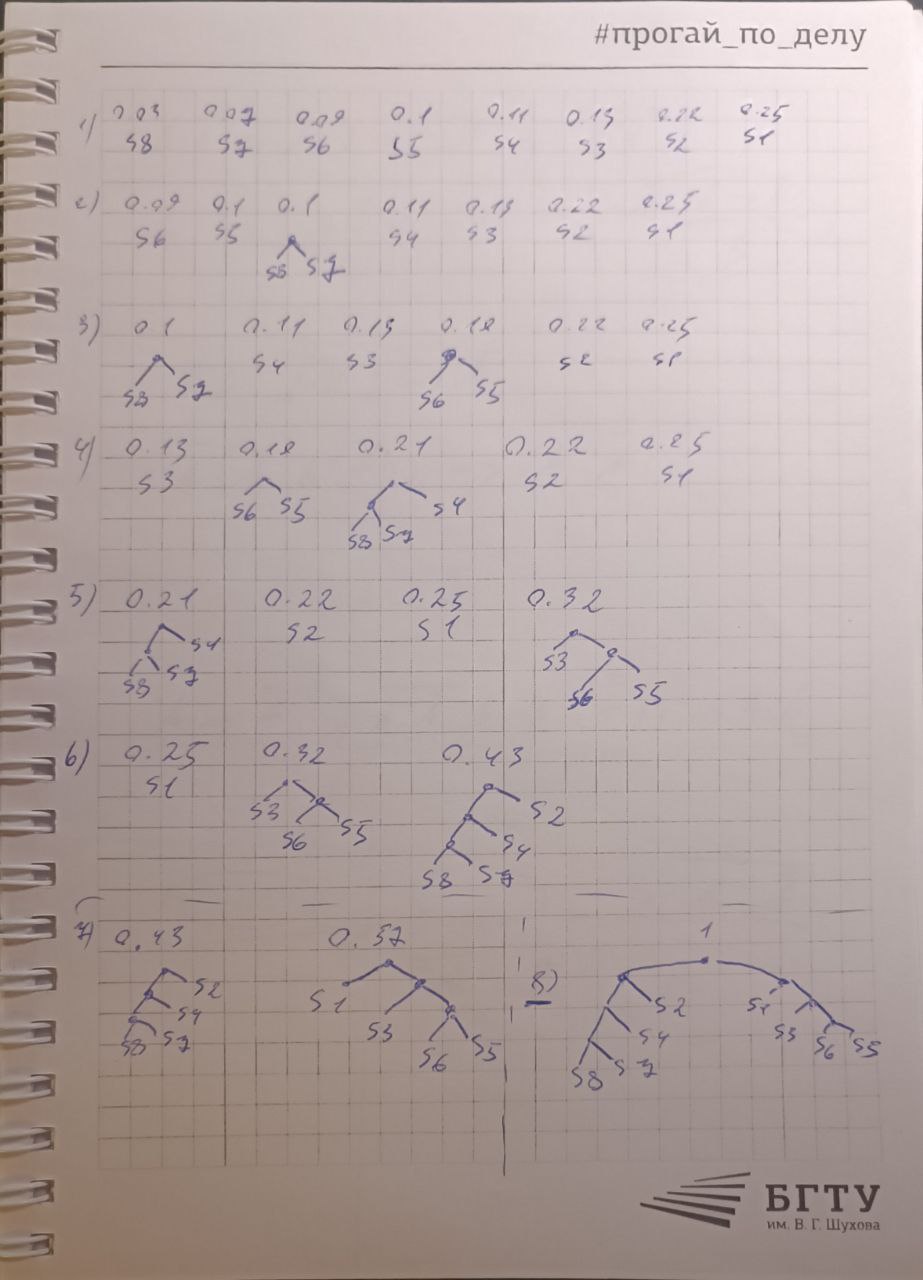 #прогай_по_делу
1) 0.03 0.07 0.08 0.1 0.11 0.13 0.22 0.25
S8 S7 S6 S5 S4 S3 S2 S1
2) 0.08 0.1 0.1 0.11 0.13 0.22 0.25
S6 S5 S4 S3 S2 S1
S8 S7
3) 0.1 0.11 0.13 0.18 0.22 0.25
S4 S3 S2 S1
S8 S7 S6 S5
4) 0.13 0.18 0.21 0.22 0.25
S3 S2 S1
S6 S5 S4
S8 S7
5) 0.21 0.22 0.25 0.32
S2 S1
S4 S3
S8 S7 S6 S5
6) 0.25 0.32 0.43
S1
S3 S2
S6 S5 S4
S8 S7
7) 0.43 0.57 8) 1
S2 S1 S2 S1
S4 S3 S4 S3
S8 S7 S6 S5 S7 S6 S5
S8
БГТУ
им. В. Г. Шухова